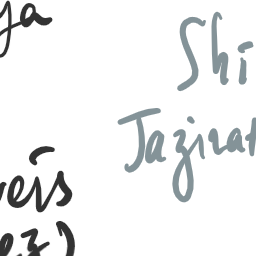 ya
Shi
Jazirat
veis
ez)